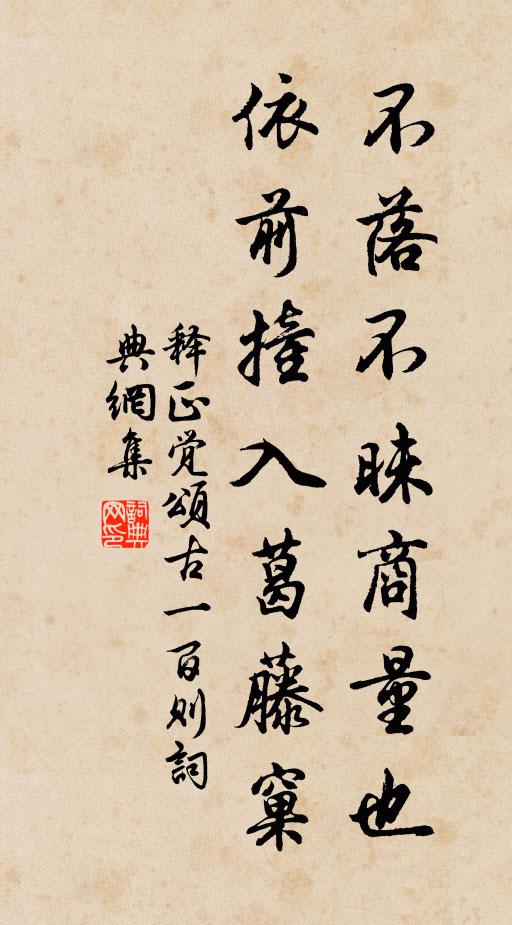 不落不昧商量也
依前撞入葛藤窠
释正觉颂古一百则词
典網集
詞典网印